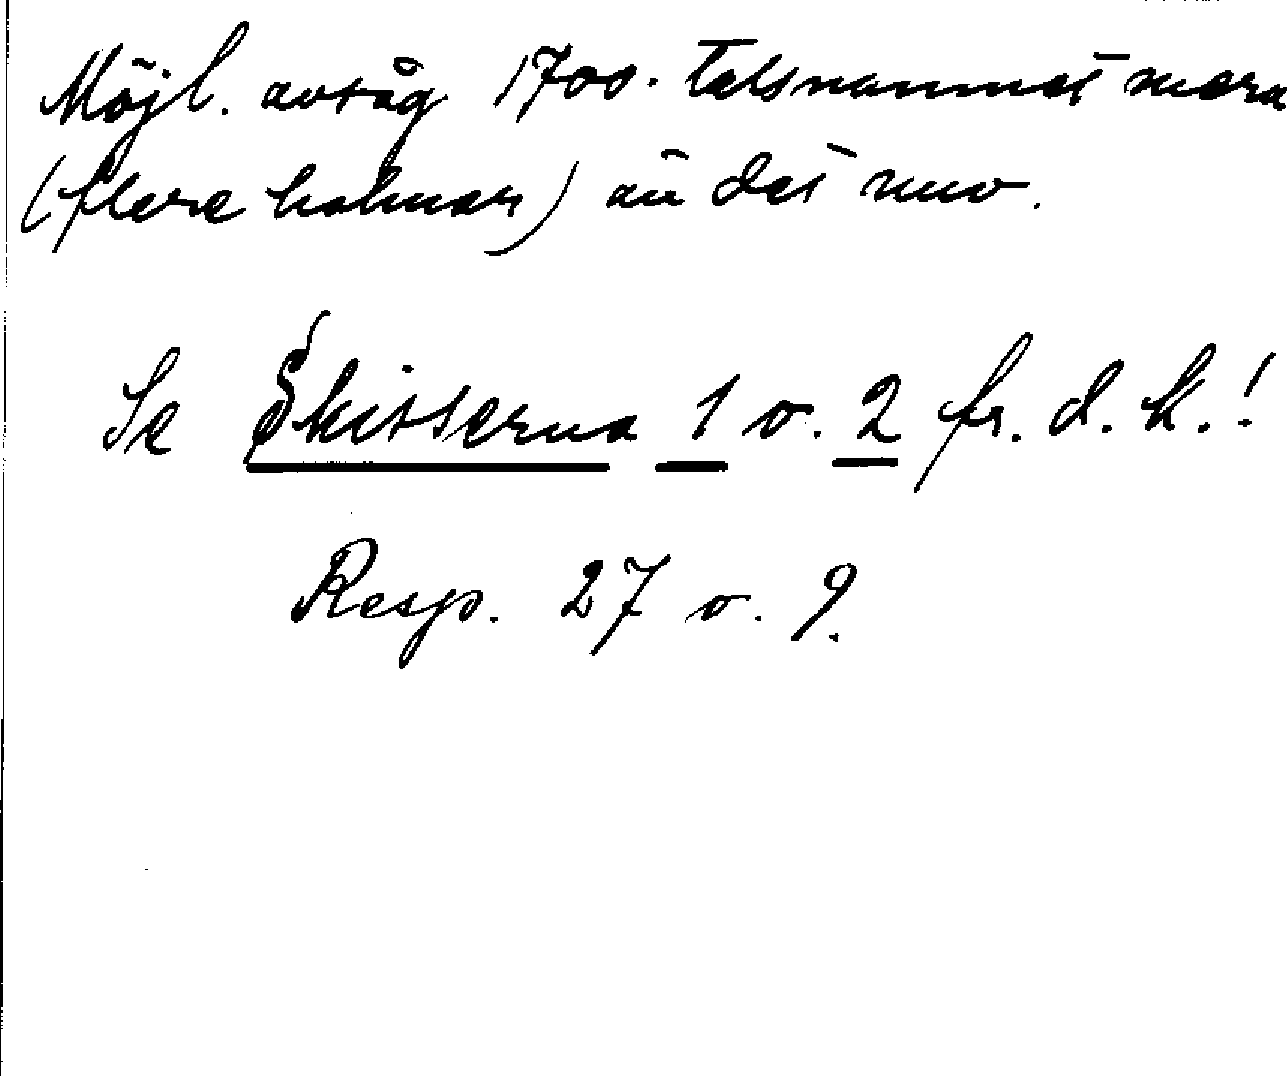 Möjl. avsåg 1700-talsnamnet mera
(flere holmar) än det nuv.
Se Skisserna 1 o. 2 fr. d. k.!
Resp. 27 o. 9.